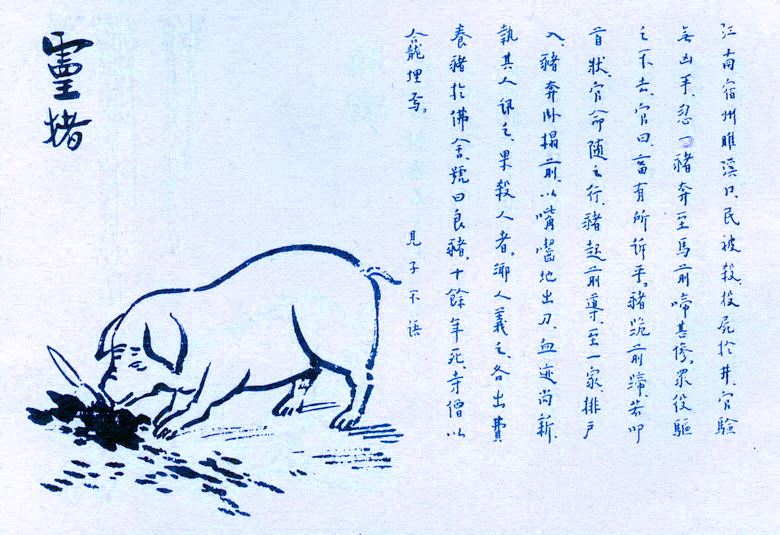 江南宿州睢溪口、民被殺、投屍於井、官驗
無凶手、忽一豬奔至馬前、啼甚慘。眾役驅
之不去、官曰、畜有所訴乎。豬跪前蹄、若叩
首狀、官命隨之行、豬起前導、至一家、排戶
入、豬奔卧榻前、以嘴齧地出刀、血迹尚新、
執其人訊之、果殺人者。鄉人義之、各出費
養豬於佛舍、號曰良豬、十餘年死、寺僧以
龕埋焉。 見子不語
靈猪